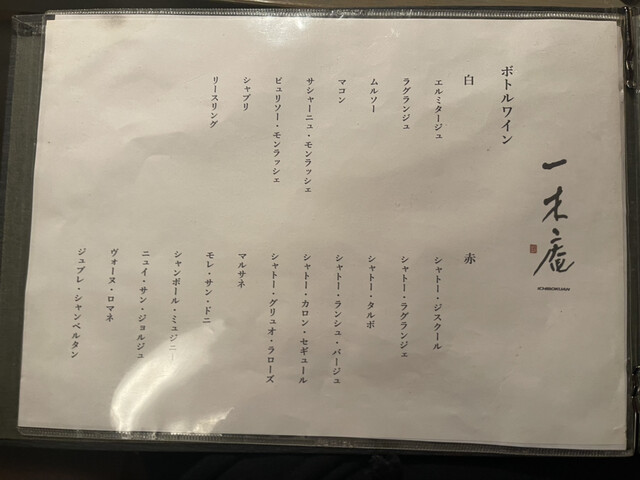 一木庵
ICHIBOKUAN
ボトルワイン
白
エルミタージュ
ラグランジュ
ムルソー
マコン
サシャーニュ・モンラッシェ
ピュリソー・モンラッシェ
シャブリ
リースリング
赤
シャトー・ジスクール
シャトー・ラグランジェ
シャトー・タルボ
シャトー・ランシュ・バージュ
シャトー・カロン・セギュール
シャトー・グリュオ・ラローズ
マルサネ
モレ・サン・ドニ
シャンボール・ミュジニー
ニュイ・サン・ジョルジュ
ヴォーヌ・ロマネ
ジュブレ・シャンベルタン